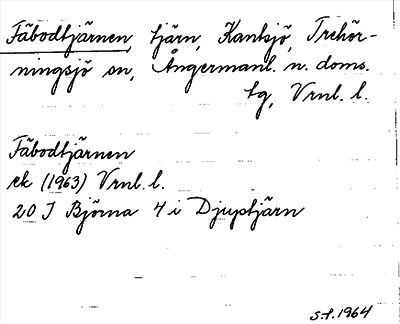 Fäbodtjärnen, tjärn, Kantsjö, Trehör-
ningsjö sn, Ångermanl. n. doms.
tg, Vrnl. l.
Fäbodtjärnen
ek (1963) Vrnl. l.
20 J Björna 4 i Djuptjärn
s.f. 1964